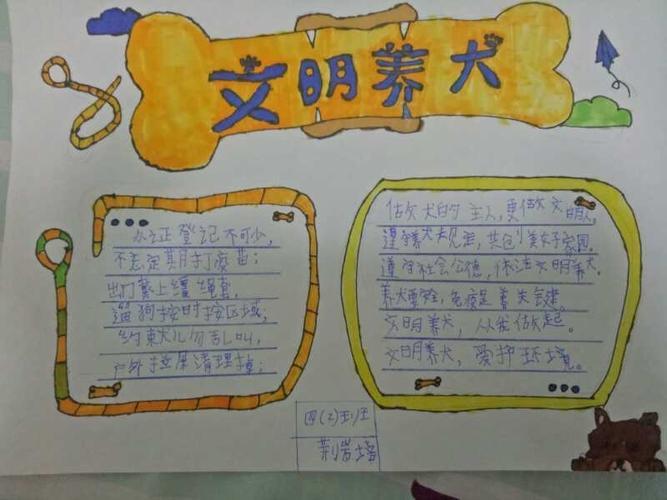 文明养犬
办证登记不可少，
不忘定期打疫苗；
出门系上缰绳套，
遛狗按时按区域，
约束犬儿勿乱叫，
户外拉屎清理掉；
做犬的主人，要做文明人，
遵守养犬规定，共创美好家园。
遵守社会公德，依法文明养犬。
文明养犬，从我做起。
文明养犬，爱护环境。
四(2)班